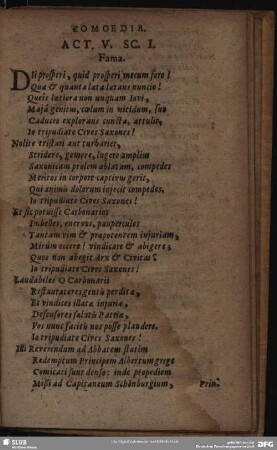 COMOEDIA.
ACT. V. SC. I.
Fama.
DII prosperi, quid prosperi mecum fero!
Qua & quanta lata latans nuncio!
Queis latiora non unquam Iovi,
Majâ genitus, cælum in nitidum, suo
Caduceo explorans cuncta, attulit,
Io tripudiate Cives Saxones!
Nolite tristari aut turbarier,
Stridere, gemere, lugere amplius
Saxonicam prolem ablatam, compedes
Meritos in corpore captivus gerit,
Qui animis dolorum injecit compedes.
Io tripudiate Cives Saxones!
Et sic potuisse Carbonarios
Imbelles, enerves, pauperculos
Tantam vim & prapotentem injuriam,
Mirùm eccere! vindicare & abigere,
Quos non abegit Arx & Civitas?
Io tripudiate Cives Saxones!
Laudabiles O Carbonarii
Restauratores gentis perdita,
Et vindices illata injuria,
Defensores salutis Patria,
Vos nunc facitis nos posse plaudere.
Io tripudiate Cives Saxones!
Illi Reverendum ad Abbatem statim
Redemptum Principem Albertum grege
Comitati sunt denso: inde propediem
Missi ad Capitaneum Schönburgium,
Prin-
SLUB